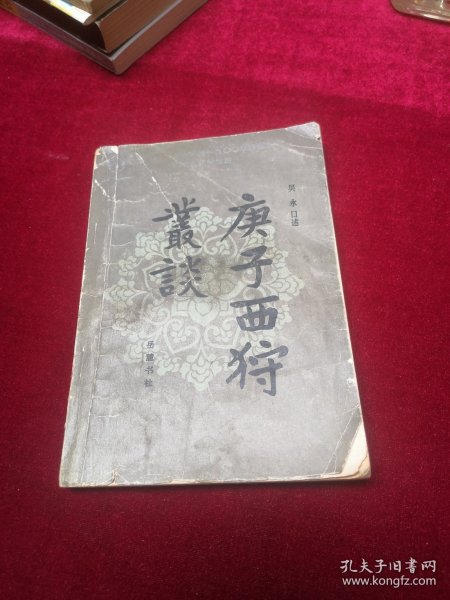 吴永口述
庚子西狩
叢談
岳麓书社
孔夫子旧书网
www.kongfz.com